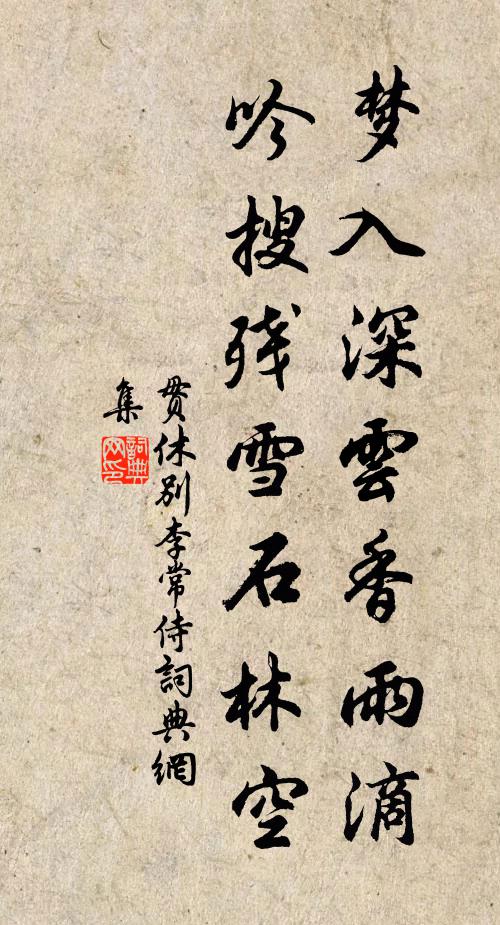 梦入深雲香雨滴
吟搜残雪石林空
貫休别李常侍詞典網
集
詞典网印